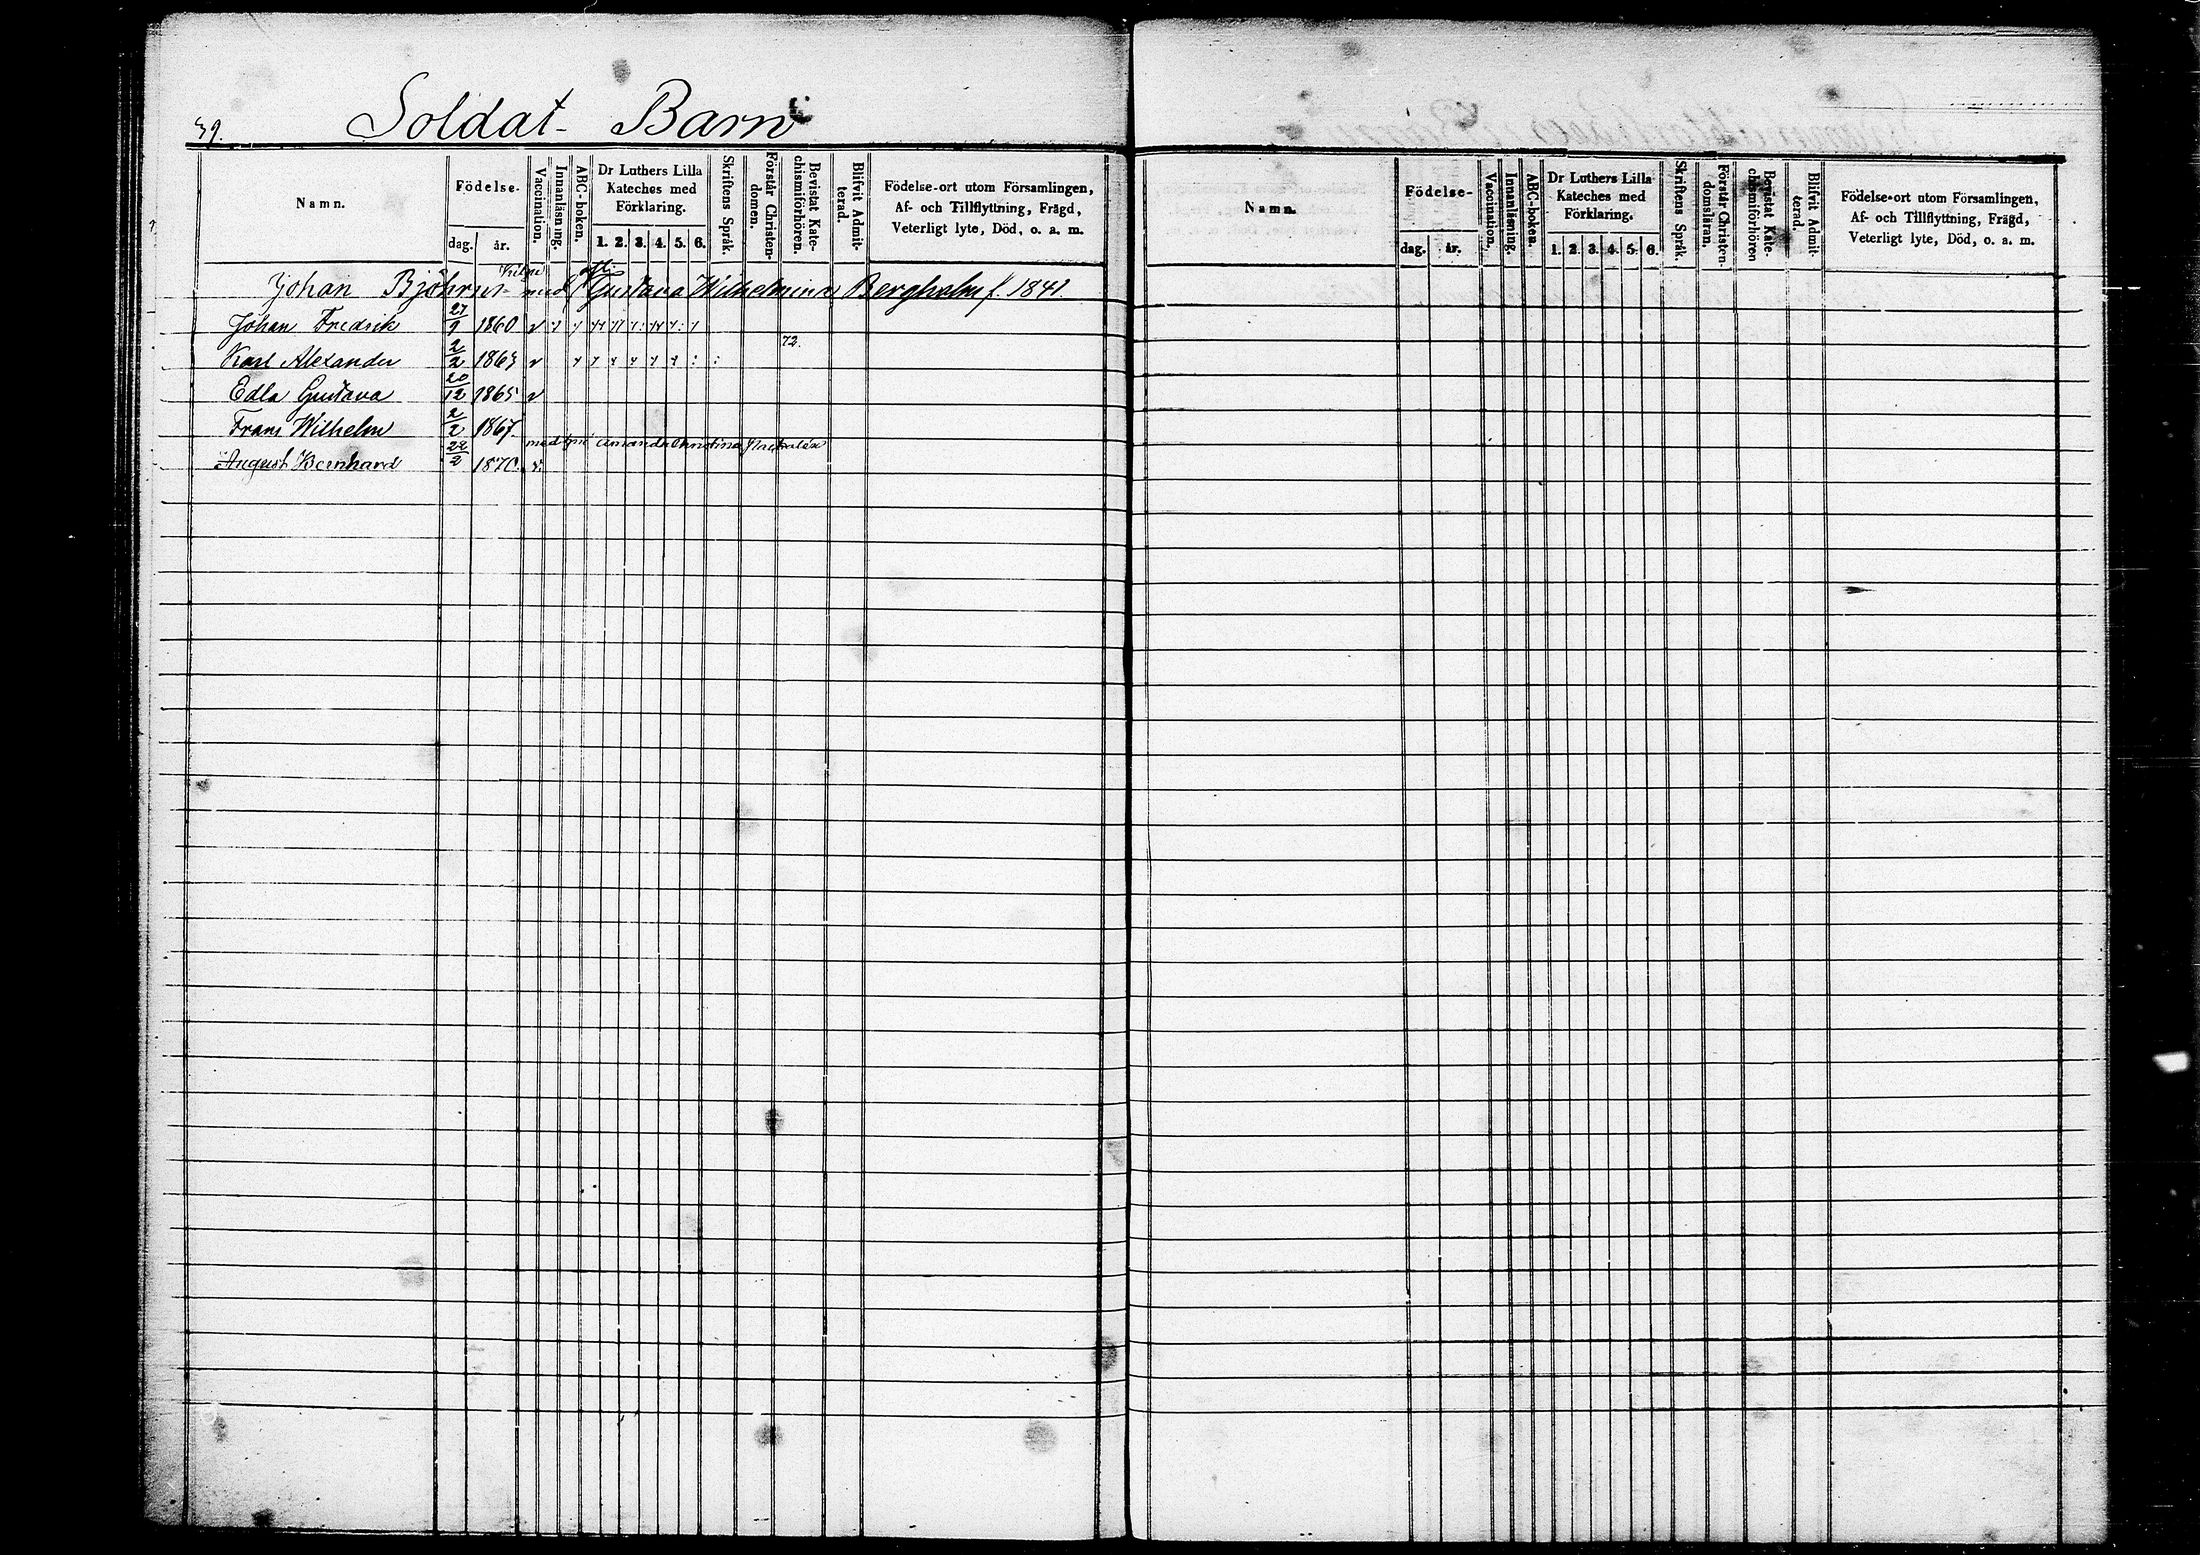 39. Soldat- Barn
Namn. Födelse- dag. år. Vaccination. Innanläsning. ABC-boken. Dr Luthers Lilla Kateches med Förklaring. 1. 2. 3. 4. 5. 6. Skriftens Språk. Förstår Christendomen. Bevistat Katechismiförhören. Blifvit Admitterad. Födelse-ort utom Församlingen, Af- och Tillflyttning, Frägd, Veterligt lyte, Död, o. a. m.
Johan Björn med Gustava Wilhelmina Bergholm f. 1841.
Johan Fredrik 27/9 1860
72.
Karl Alexander 2/2 1863
Edla Gustava 20/12 1865
Frans Wilhelm 2/2 1867.
med Amanda Christina
August Bernhard 22/2 1870.
Namn. Födelse- dag. år. Vaccination. Innanläsning. ABC-boken. Dr Luthers Lilla Kateches med Förklaring. 1. 2. 3. 4. 5. 6. Skriftens Språk. Förstår Christendomsläran. Bevistat Katechismiförhören Blifvit Admitterad. Födelse-ort utom Församlingen, Af- och Tillflyttning, Frägd, Veterligt lyte, Död, o. a. m.